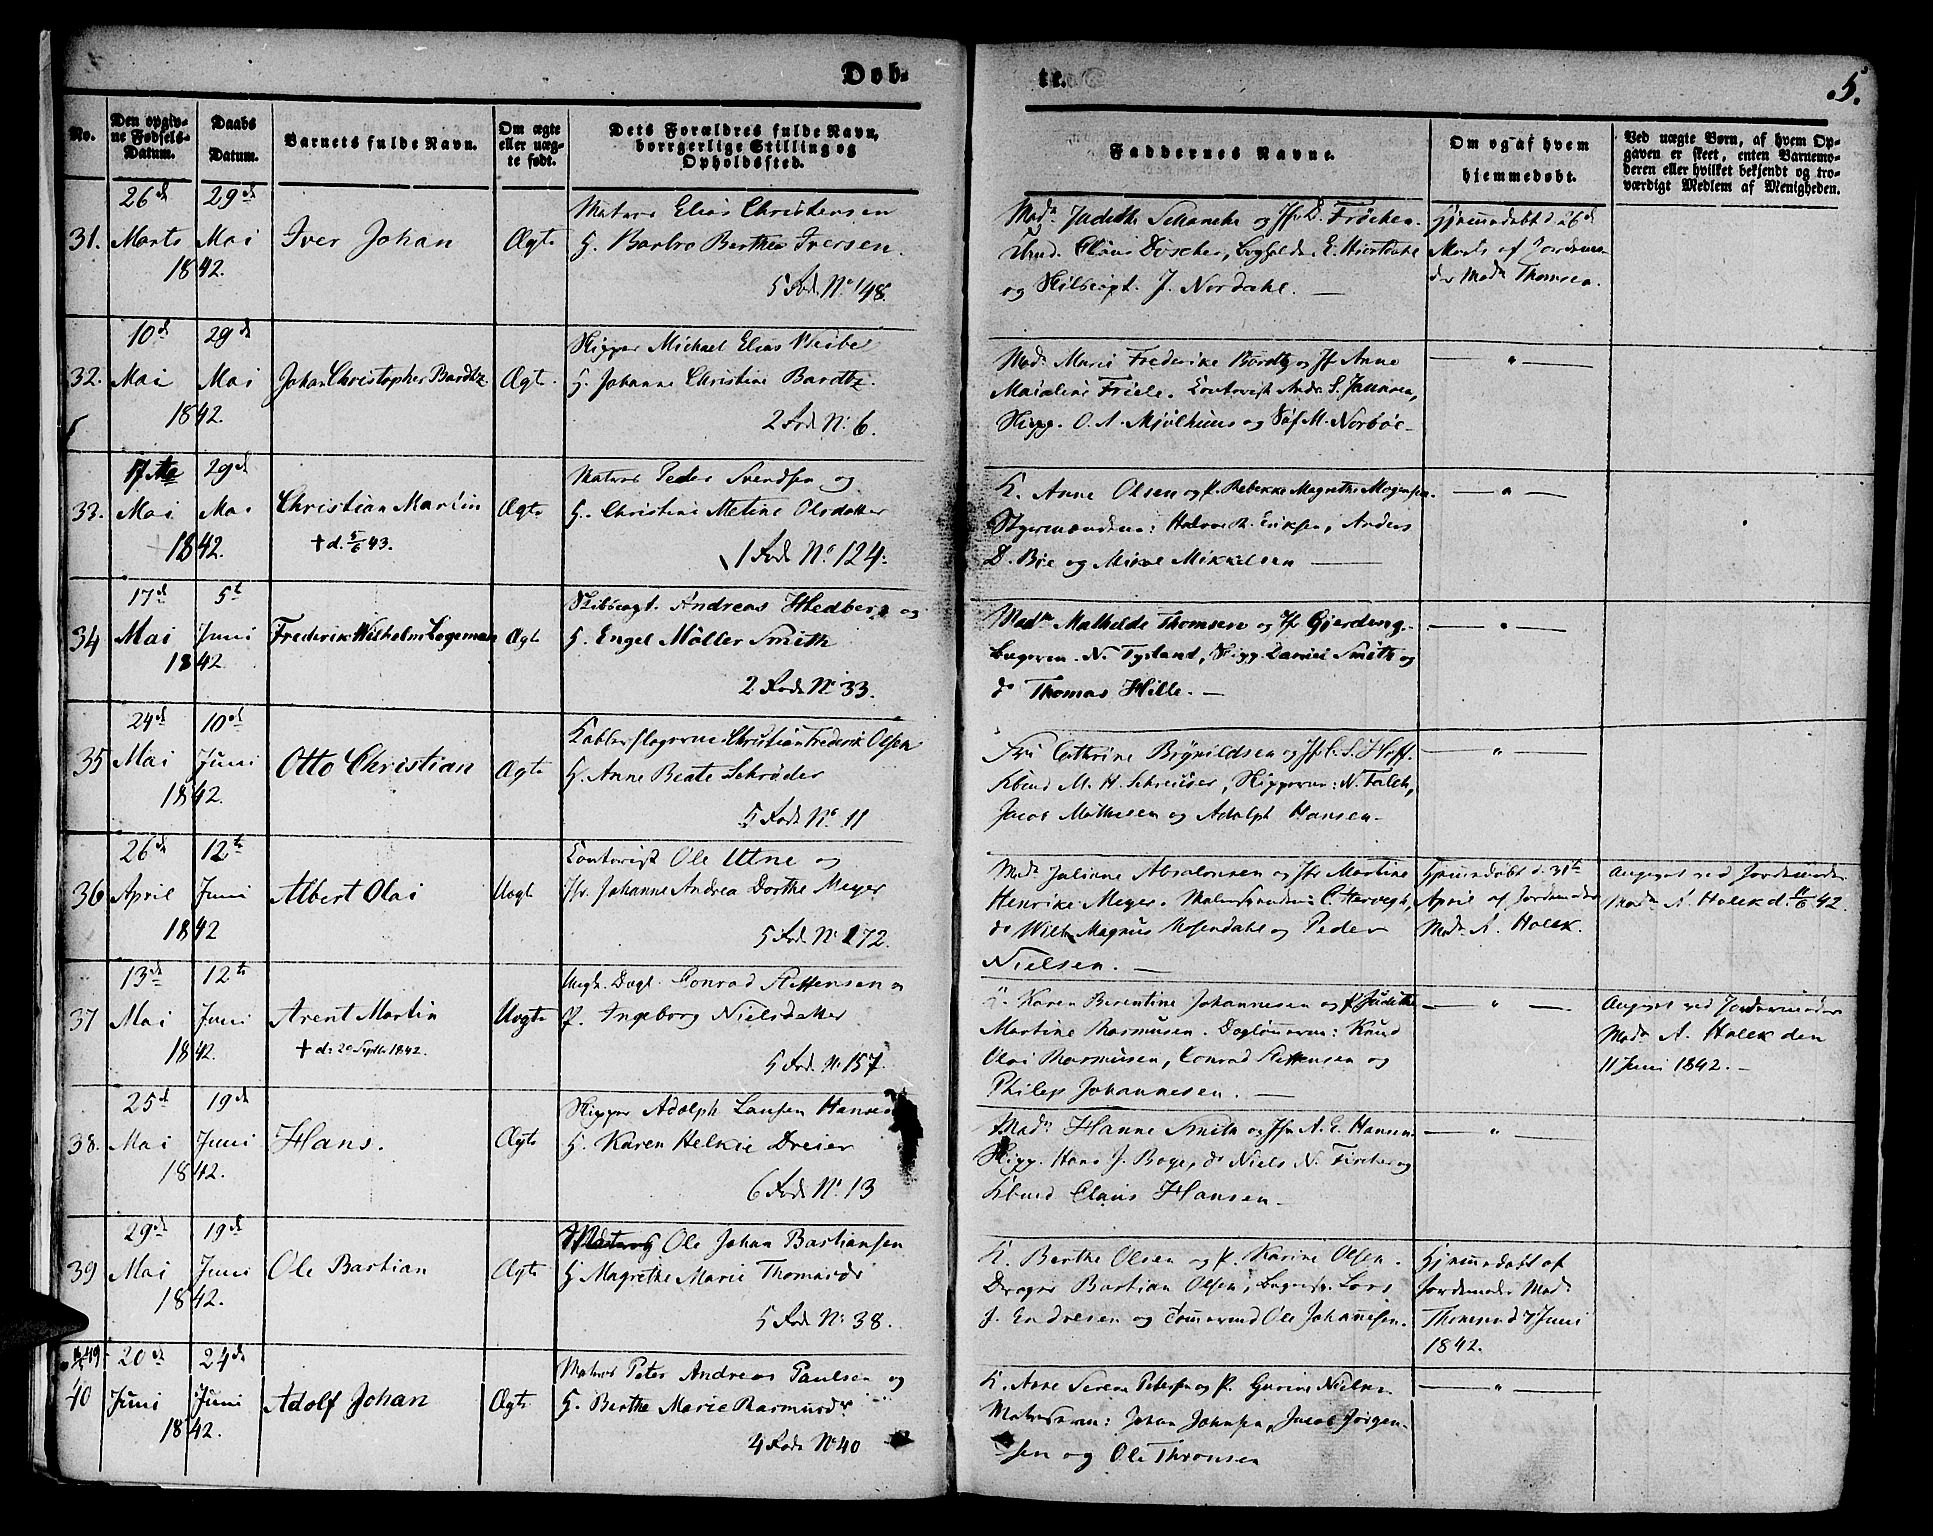 Døb-
te.
5.
No.
Den opgiv-
ne Fødsels-
Datum.
Daabs
Datum.
Barnets fulde Navn.
Om ægte
eller uæg-
te født.
Dets Forældres fulde Navn,
borgerlige Stilling og
Opholdssted.
Faddernes Navne.
Om og af hvem
hjemmedøbt.
Ved uægte Børn, af hvem Op-
gaven er skeet, enten Barnemo-
deren eller hvilket bekjendt og tro-
værdigt Medlem af Menigheden.
31.
26de
Marts
1842.
29de
Mai
Iver Johan
Ægte
Matros Elias Christensen
H. Barbro Berthea Iversen.
5 Rode No 148.
Madm Judithe Schancke og Jfr D. Frøchen.
Elias Døscher, Bogholder E. Hiortdahl
og Skibscapt. J. Nordahl. —
Hjemmedøbt d 26de
Marts af Jordemo-
der Madm Thomsen.
32.
10de
Mai
1842.
29de
Mai
Johan Christopher Bardtz
Ægte.
Skipper Michael Elias Weibe
H. Johanne Christine Bardtz.
2 Rode No 6.
Madm Marie Frederikke Bardtz og Jfr Anne
Friele. Contorist Andr. S. Jannsen,
Skipp. O. A. Mjølhuus og M. Norbøe
— " —
33.
17de
Mai
1842.
29de
Mai
Christian Martin
† d. 5/6 43.
Ægte
Matros Peder Svendsen og
H. Christine Metine Olsdatter
1 Rode No 124.
K. Anne Olsen og P. Rebekke Magrethe Mogensen.
Styrmændene: Halvor R. Eriksen, Anders
D. Bøe og Mikkel Mikkelsen —
— " —
34
17de
Mai
1842
5te
Juni
Frederik Wilhelm Logeman
Ægte
Skibscapt. Andreas Hedberg og
H. Engel Møller Smith
2 Rode No 33.
Madm Mathilde Thomsen og Jfr Gjerding.
N. Tysland, Skipp Daniel Smith og
do Thomas Hille. —
— " —
35
24de
Mai
1842.
10de
Juni
Otto Christian
Ægte
Christian Frederik Olsen
H. Anne Beate Schrøder
5 Rode No 11
Fru Cathrine Brynildsen og Jfr C. S. Hoff.
M. H. Schreuder, Skipperne: N. Falch,
Jacob Mathiesen og Adolph Hansen.
— " —
36
26de
April
1842
12te
Juni
Albert Olai
Uægte
Contorist Ole Utne og
Jfr. Johanne Andrea Dorthe Meyer
5 Rode No 172.
Madm Juliane Absalonsen og Jfr Martine
Henrike Meyer. C. Hervegh,
do Wilh. Magnus Rosendahl og Peder
Nielsen. —
Hjemmedøbt d. 31te
April af Jordemoder
Madm A. Holck.
Angivet ved Jordemoder
Madm A. Holck d. 11/6 42.
37
13de
Mai
1842.
12te
Juni
Arent Martin
† d: 20 Septbr 1842.
Uægte
Ungk. Dagl. Conrad Steffensen og
P. Ingeborg Nielsdatter
5 Rode No 157.
K. Karen Berentine Johannesen og P. Judithe
Martine Rasmusen. Daglønnerne: Knud
Olai Rasmusen, Conrad Steffensen og
Philip Johannesen. —
— " —
Angivet ved Jordemoder
Madm A. Holck den
11 Juni 1842. —
38.
25de
Mai
1842.
19de
Juni
Hans.
Ægte
Skipper Adolph Hansen
H. Karen Helkie Dreier
6 Rode No 13
Madm Hanne Smith og Jfr A. E. Hansen.
Skipp. Hans J. Bøge, do Niels N. Fischer og
Claus Hansen.
— " —
39
29de
Mai
1842.
19de
Juni
Ole Bastian
Ægte
Ole Johan Bastiansen
H Magrethe Marie Thomasdr
5 Rode No 38.
K. Berthe Olsen og P. Karine Olsen.
Drager Bastian Olsen, Lars
J. Endresen og Ole Johannesen.
Hjemmedøbt af
Jordemoder Madm
Thomsen d 7 Juni
1842.
40
20de
Juni
1842.
24de
Juni
Adolf Johan
Ægte
Matros Peter Andreas Paulsen og
H. Berthe Marie Rasmusdr
4 Rode No 40
K. Anne Serene Petersen og P. Gurine Nielsen
Matroserne: Johan Johnsen, Jacob Jørgen-
sen og Ole Thronsen
— " —